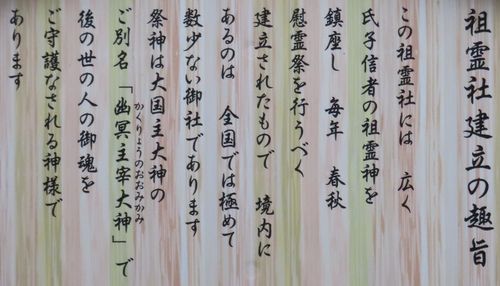 祖霊社建立の趣旨
この祖霊社には 広く
氏子信者の祖霊神を
鎮座し 毎年 春秋
慰霊祭を行うべく
建立されたもので 境内に
あるのは 全国では極めて
数少ない御社であります
祭神は大国主大神の
ご別名「幽冥主宰大神」で
かくりょうのおおみかみ
後の世の人の御魂を
ご守護なされる神様で
あります